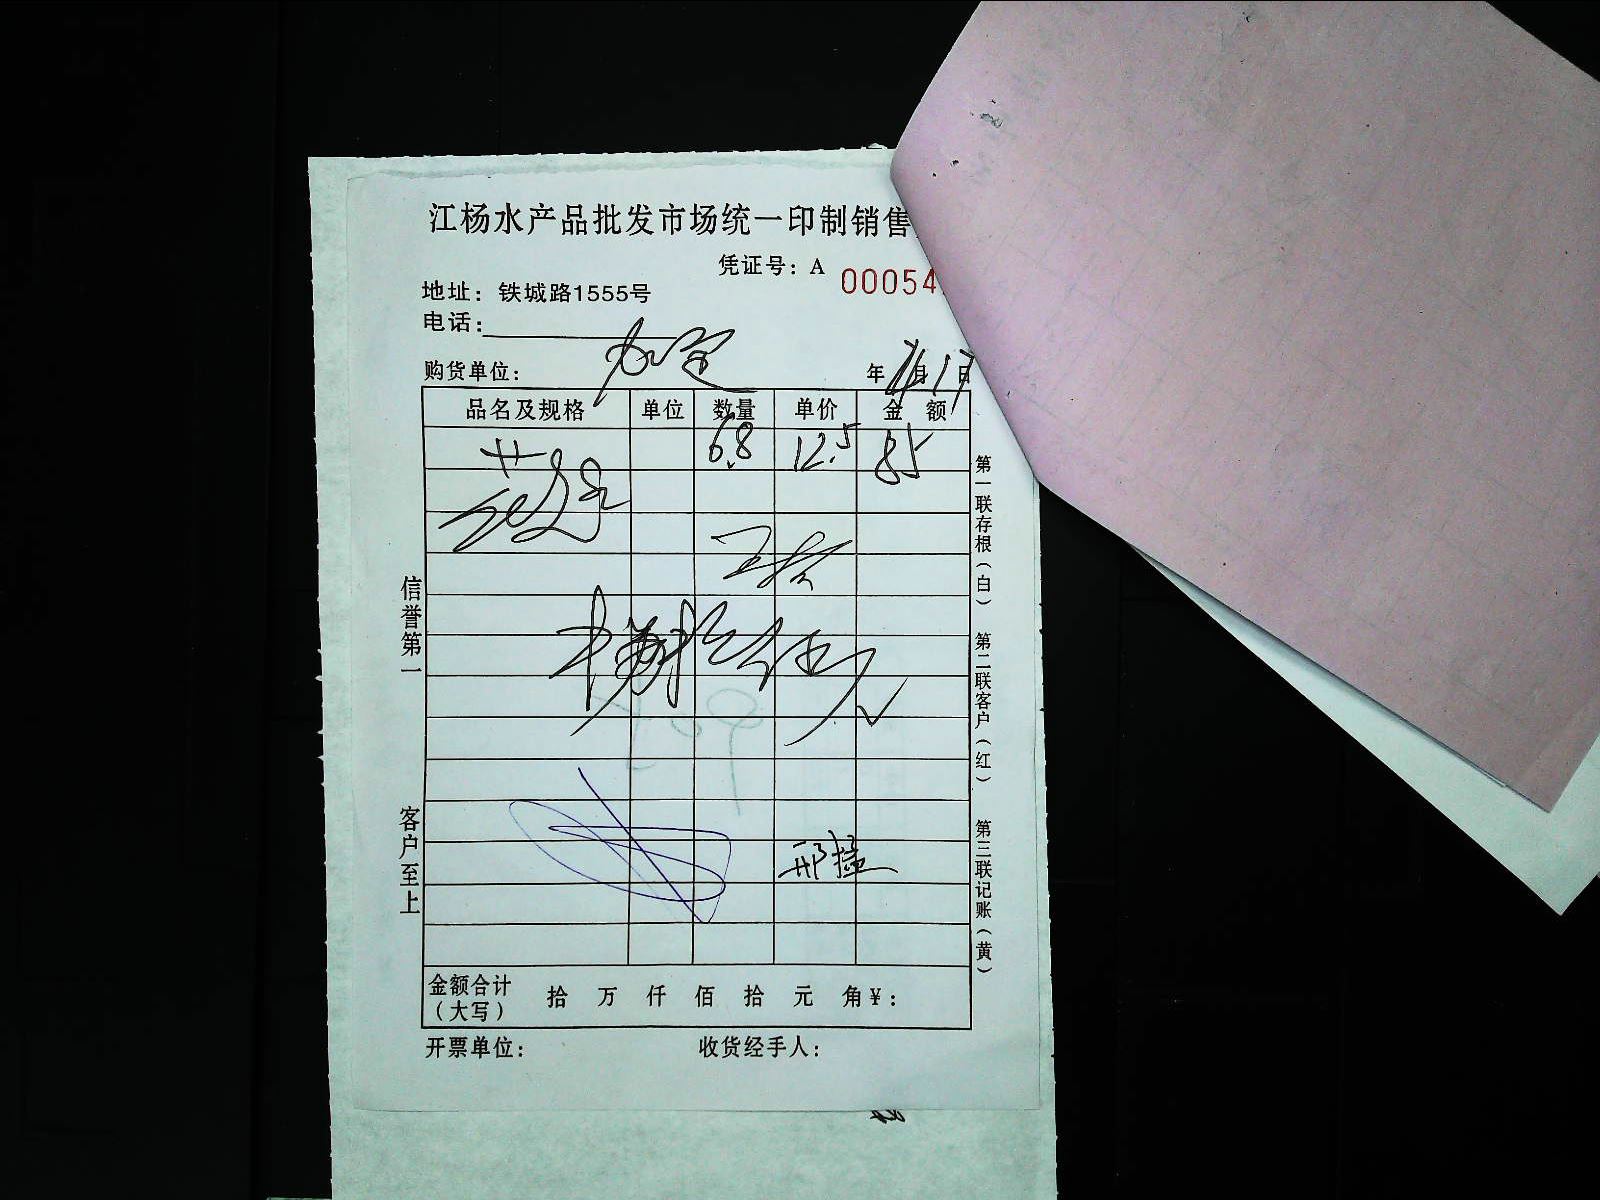 江杨水产品批发市场统一印制销售
凭证号：A 00054
地址：铁城路1555号
电话：
购货单位：加定 年 7月17日
品名及规格 单位 数量 单价 金 额
6.8 12.5 85
信誉第一
客户至上
第一联存根（白） 第二联客户（红） 第三联记账（黄）
邢猛
金额合计（大写） 拾 万 仟 佰 拾 元 角 ¥：
开票单位： 收货经手人：